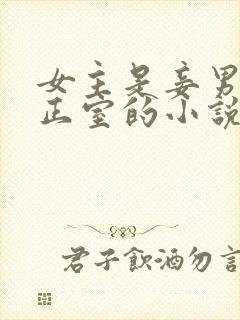 女主是妾男
正室的小說
君子飲酒勿言